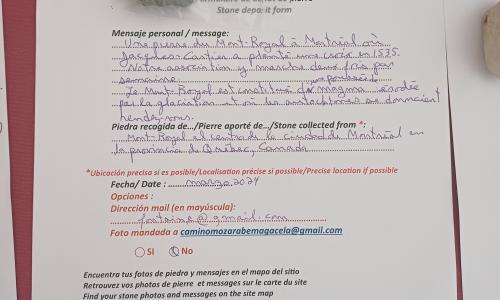 Stone deposit form
Mensaje personal / message:
Une pierre du Mont-Royal à Montréal où
Jacques Cartier a planté une croix en 1535.
Notre association y marche deux fois par
semaine
Le Mont-Royal est constitué de magma érodée
par la glaciation et où les autochtones se donnaient
rendez-vous.
Piedra recogida de.../Pierre apporté de.../Stone collected from *:
Mont-Royal al centro de la ciudad de Montréal en
la provincia de Québec, Canada
*Ubicación precisa si es posible/Localisation précise si possible/Precise location if possible
Fecha/ Date : marzo 2024
Opciones :
Dirección mail (en mayúscula):
fontaine@gmail.com
Foto mandada a caminomozarabemagacela@gmail.com
SI No
Encuentra tus fotos de piedra y mensajes en el mapa del sitio
Retrouvez vos photos de pierre et messages sur le carte du site
Find your stone photos and messages on the site map